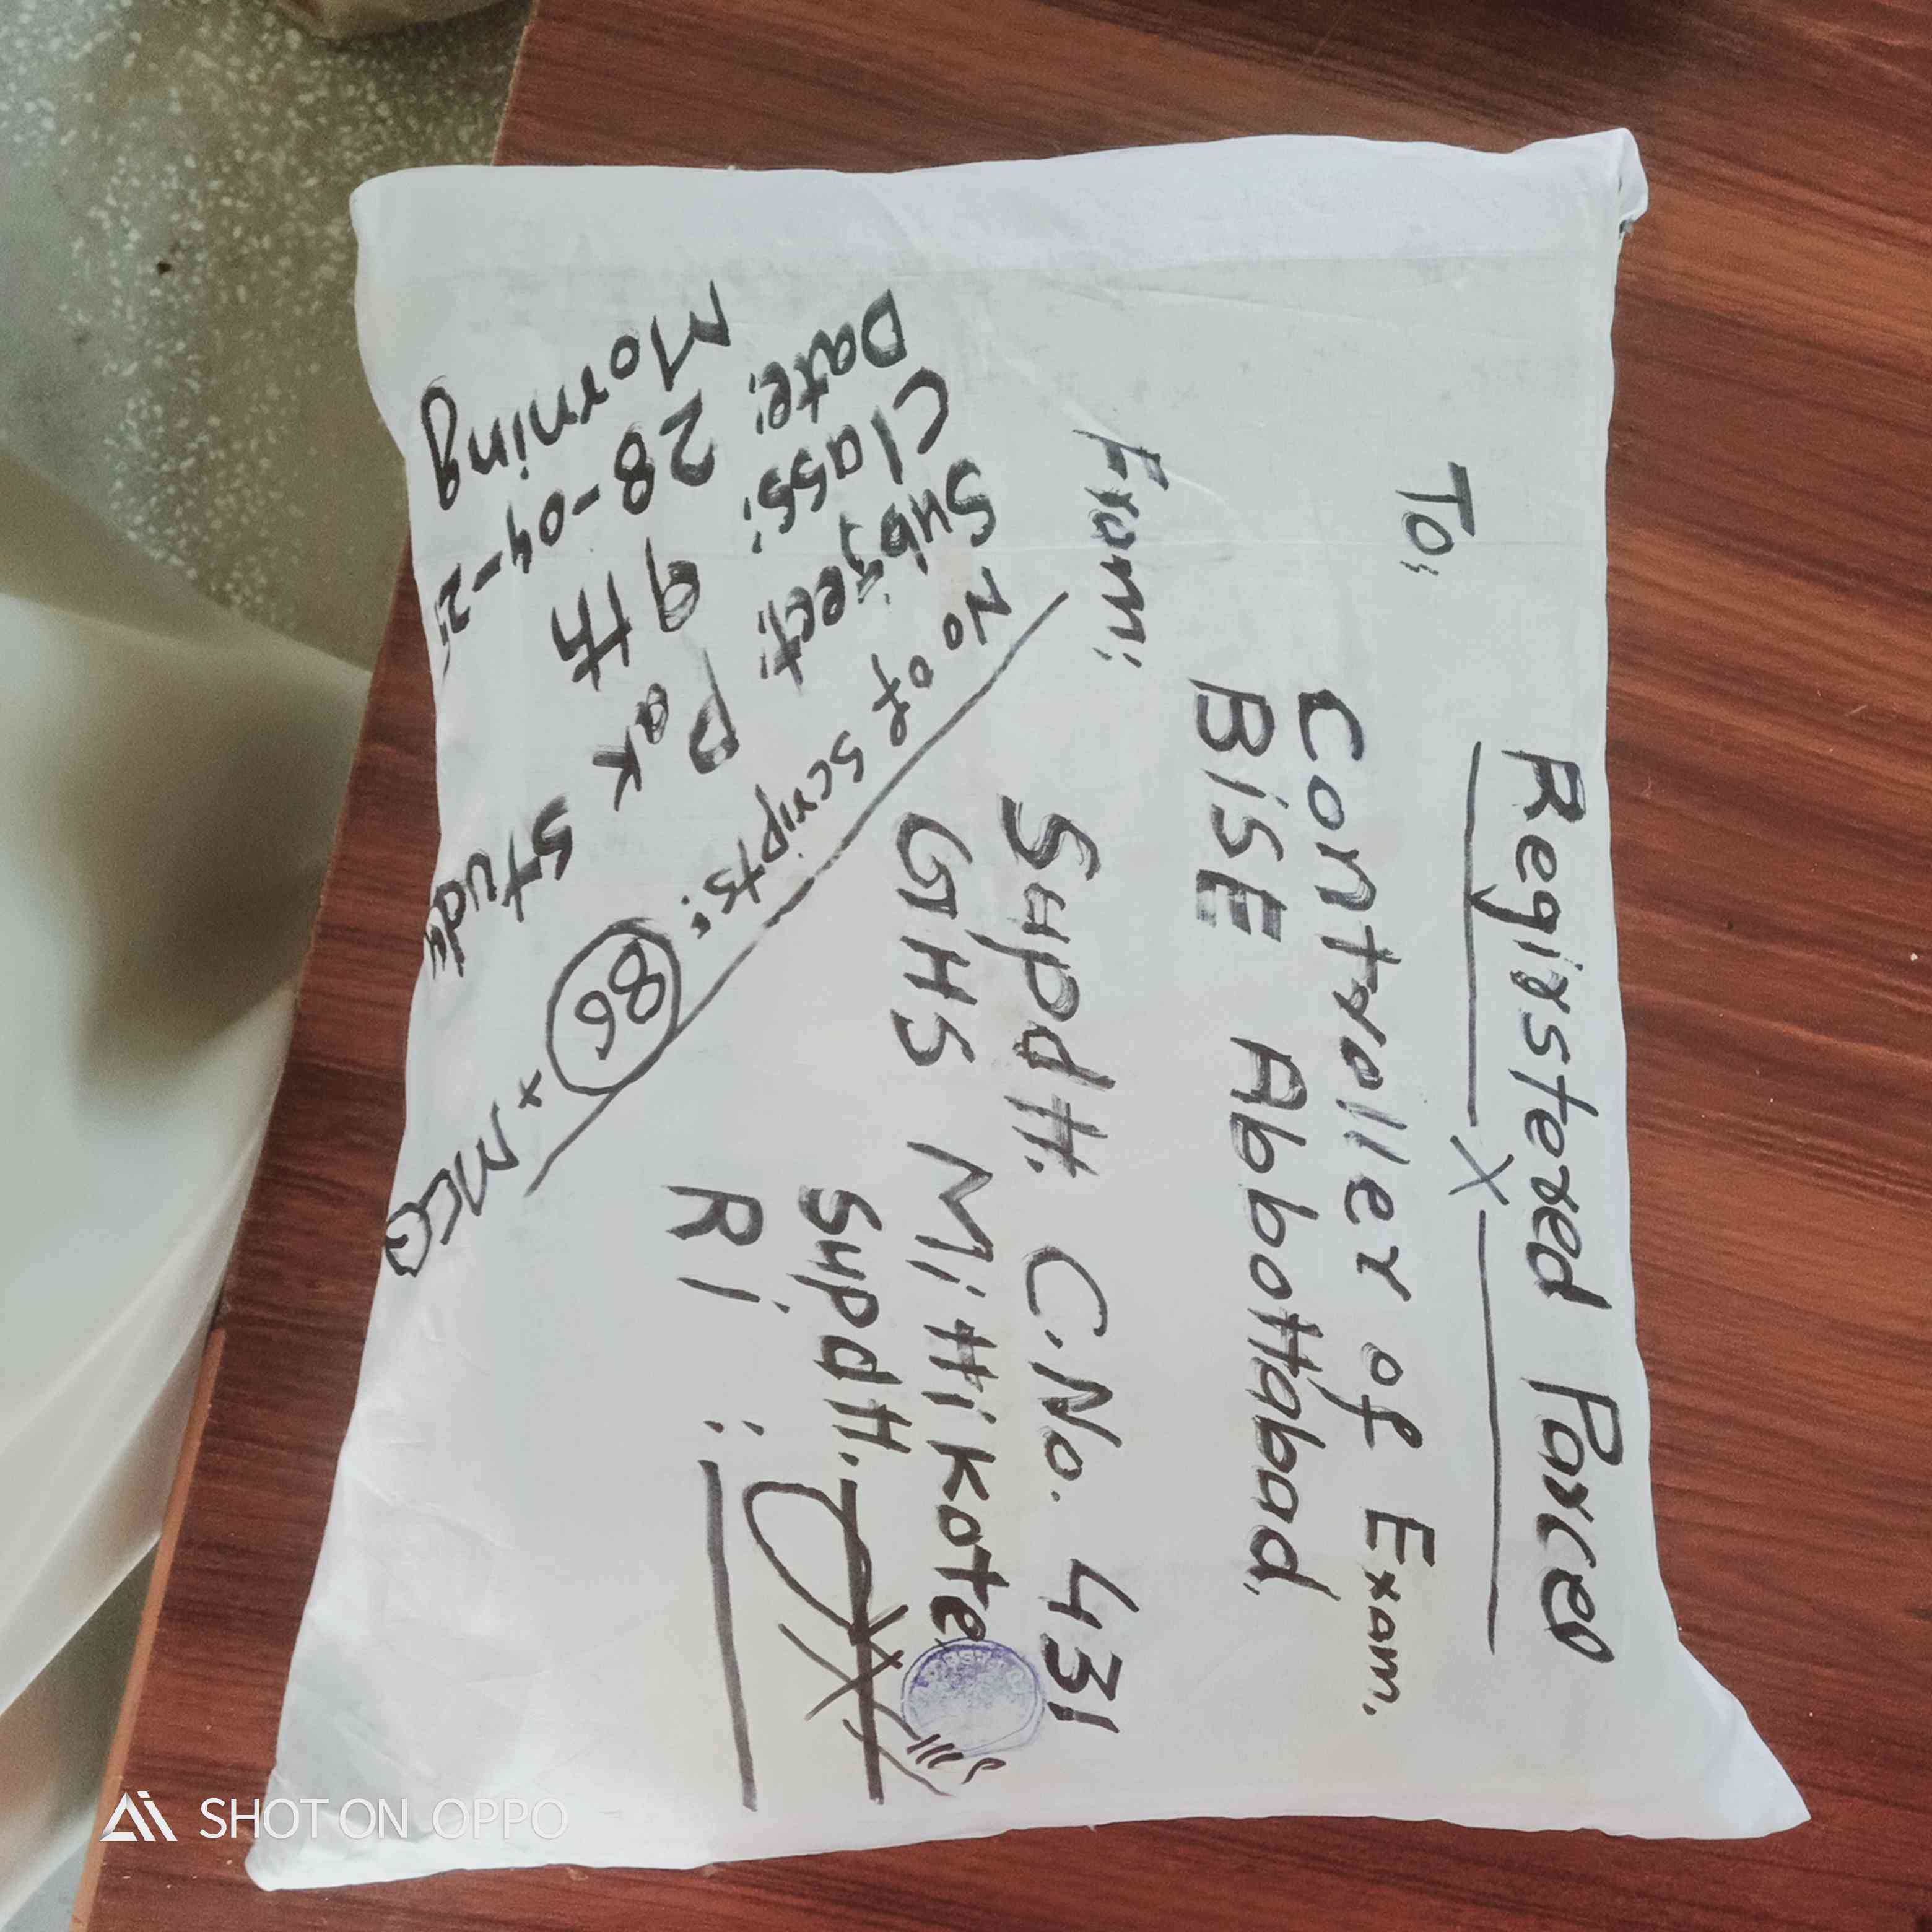 Registered Parcel
X
To:
Controller of Exam.
BISE Abbottabad.
From:
Supdtt. C.No. 431
GHS Mitti kote
Supdtt.
RI :
No of scripts: 86 x MCQ
Subject: Pak Stude
Class: 9th
Date: 28-04-2
Morning
SHOT ON OPPO